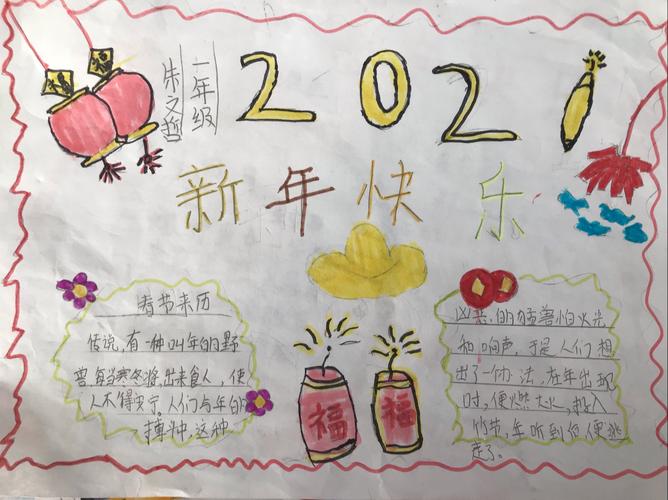 一年级
朱文哲
2021
新年快乐
春节来历
传说,有一种叫年的野
兽,每当寒冬将,出来食人,使
人不得安宁。人们与年的
这种
的猛兽怕火光
和响声,于是人们想
出了一办法,在年出现
时,便燃大火,投入
竹节,年听到后便逃
走了。
福
福